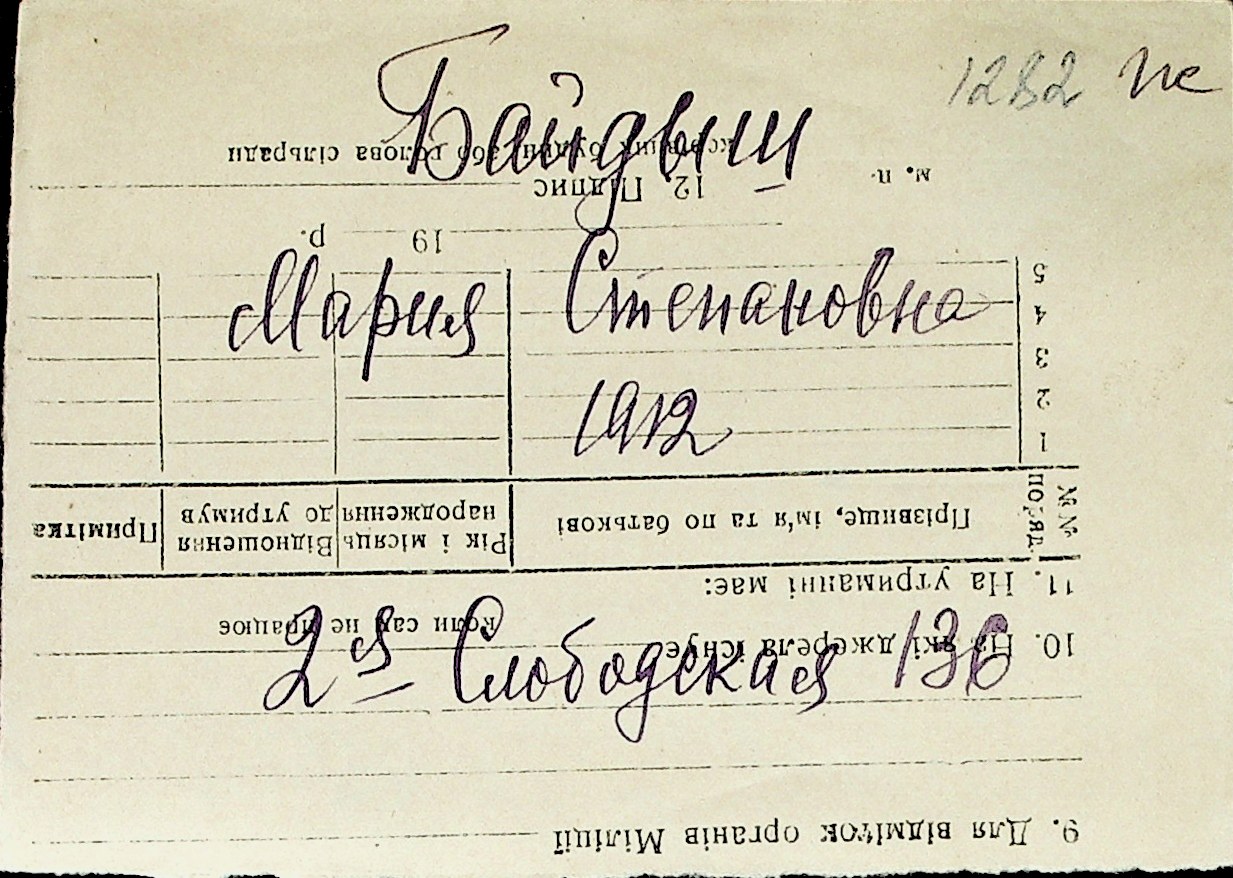 1282 не
Байдыш
Мария Степановна
1912
2я Слободская 136
9. Для відміток органів Міліції
10. На які джерела існує,
коли сам не працює
11. На утриманні має:
№№ по ряд. Прізвище, ім'я та по батькові Рік і місяць народження Відношення до утримув Примітка
1
2
3
4
5
19 р.
м. п. 12. Підпис
будин або голова сільради